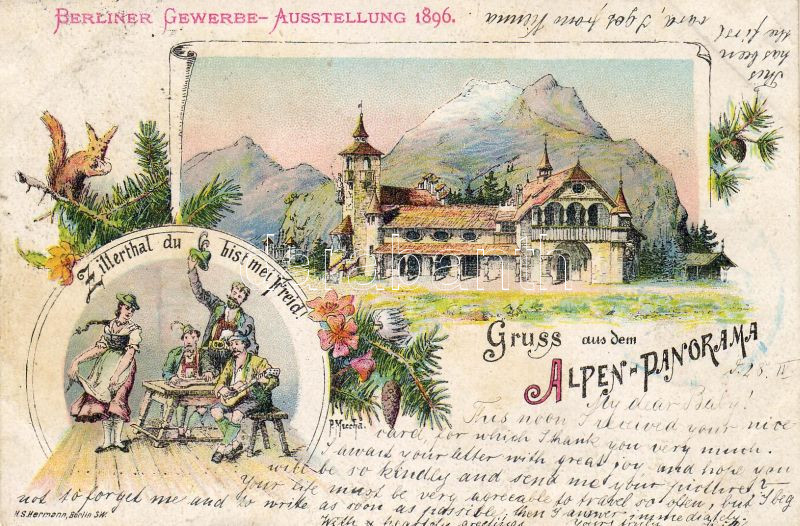 BERLINER GEWERBE-AUSSTELLUNG 1896.
This
has been
the first
card, I get from
Zillerthal du bist mei Freid!
Gruss aus dem
ALPEN-PANORAMA
My dear Baby!
This noon I received your nice
card, for which I thank you very much.
I await your letter with great joy, and hope you
will be so kindly and send me your picture?
Your life must be very agreeable to travel so often, but I beg
not to forget me and to write as soon as possible, then I answer immediately.
With heartily greetings
H.S. Hermann, Berlin S.W.